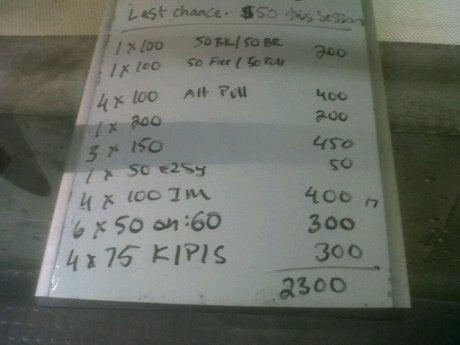 Last chance. $50 this session
1 x 100 50 BK / 50 BR 200
1 x 100 50 Free / 50 Pull
4 x 100 Alt Pull 400
1 x 200 200
3 x 150 450
1 x 50 easy 50
4 x 100 IM 400
6 x 50 on :60 300
4 x 75 K/P/S 300
2300